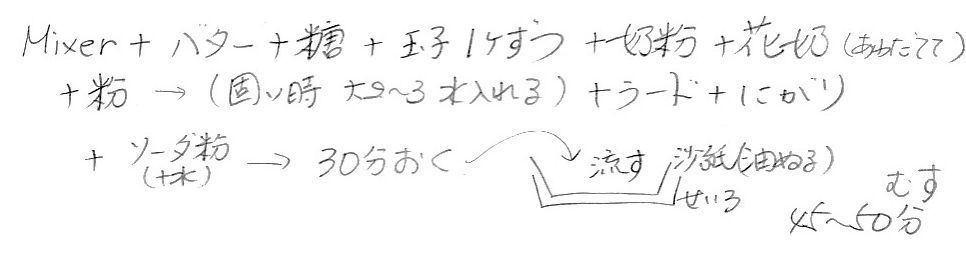 Mixer + バター + 糖 + 玉子1ケずつ + 奶粉 + 花奶 (あわだてて)
+ 粉 → (固い時 大2〜3 水入れる) + ラード + にがり
+ ソーダ粉 → 30分おく 流す 沙紙(油ぬる)
(+水)
せいろ
むす
45〜50分